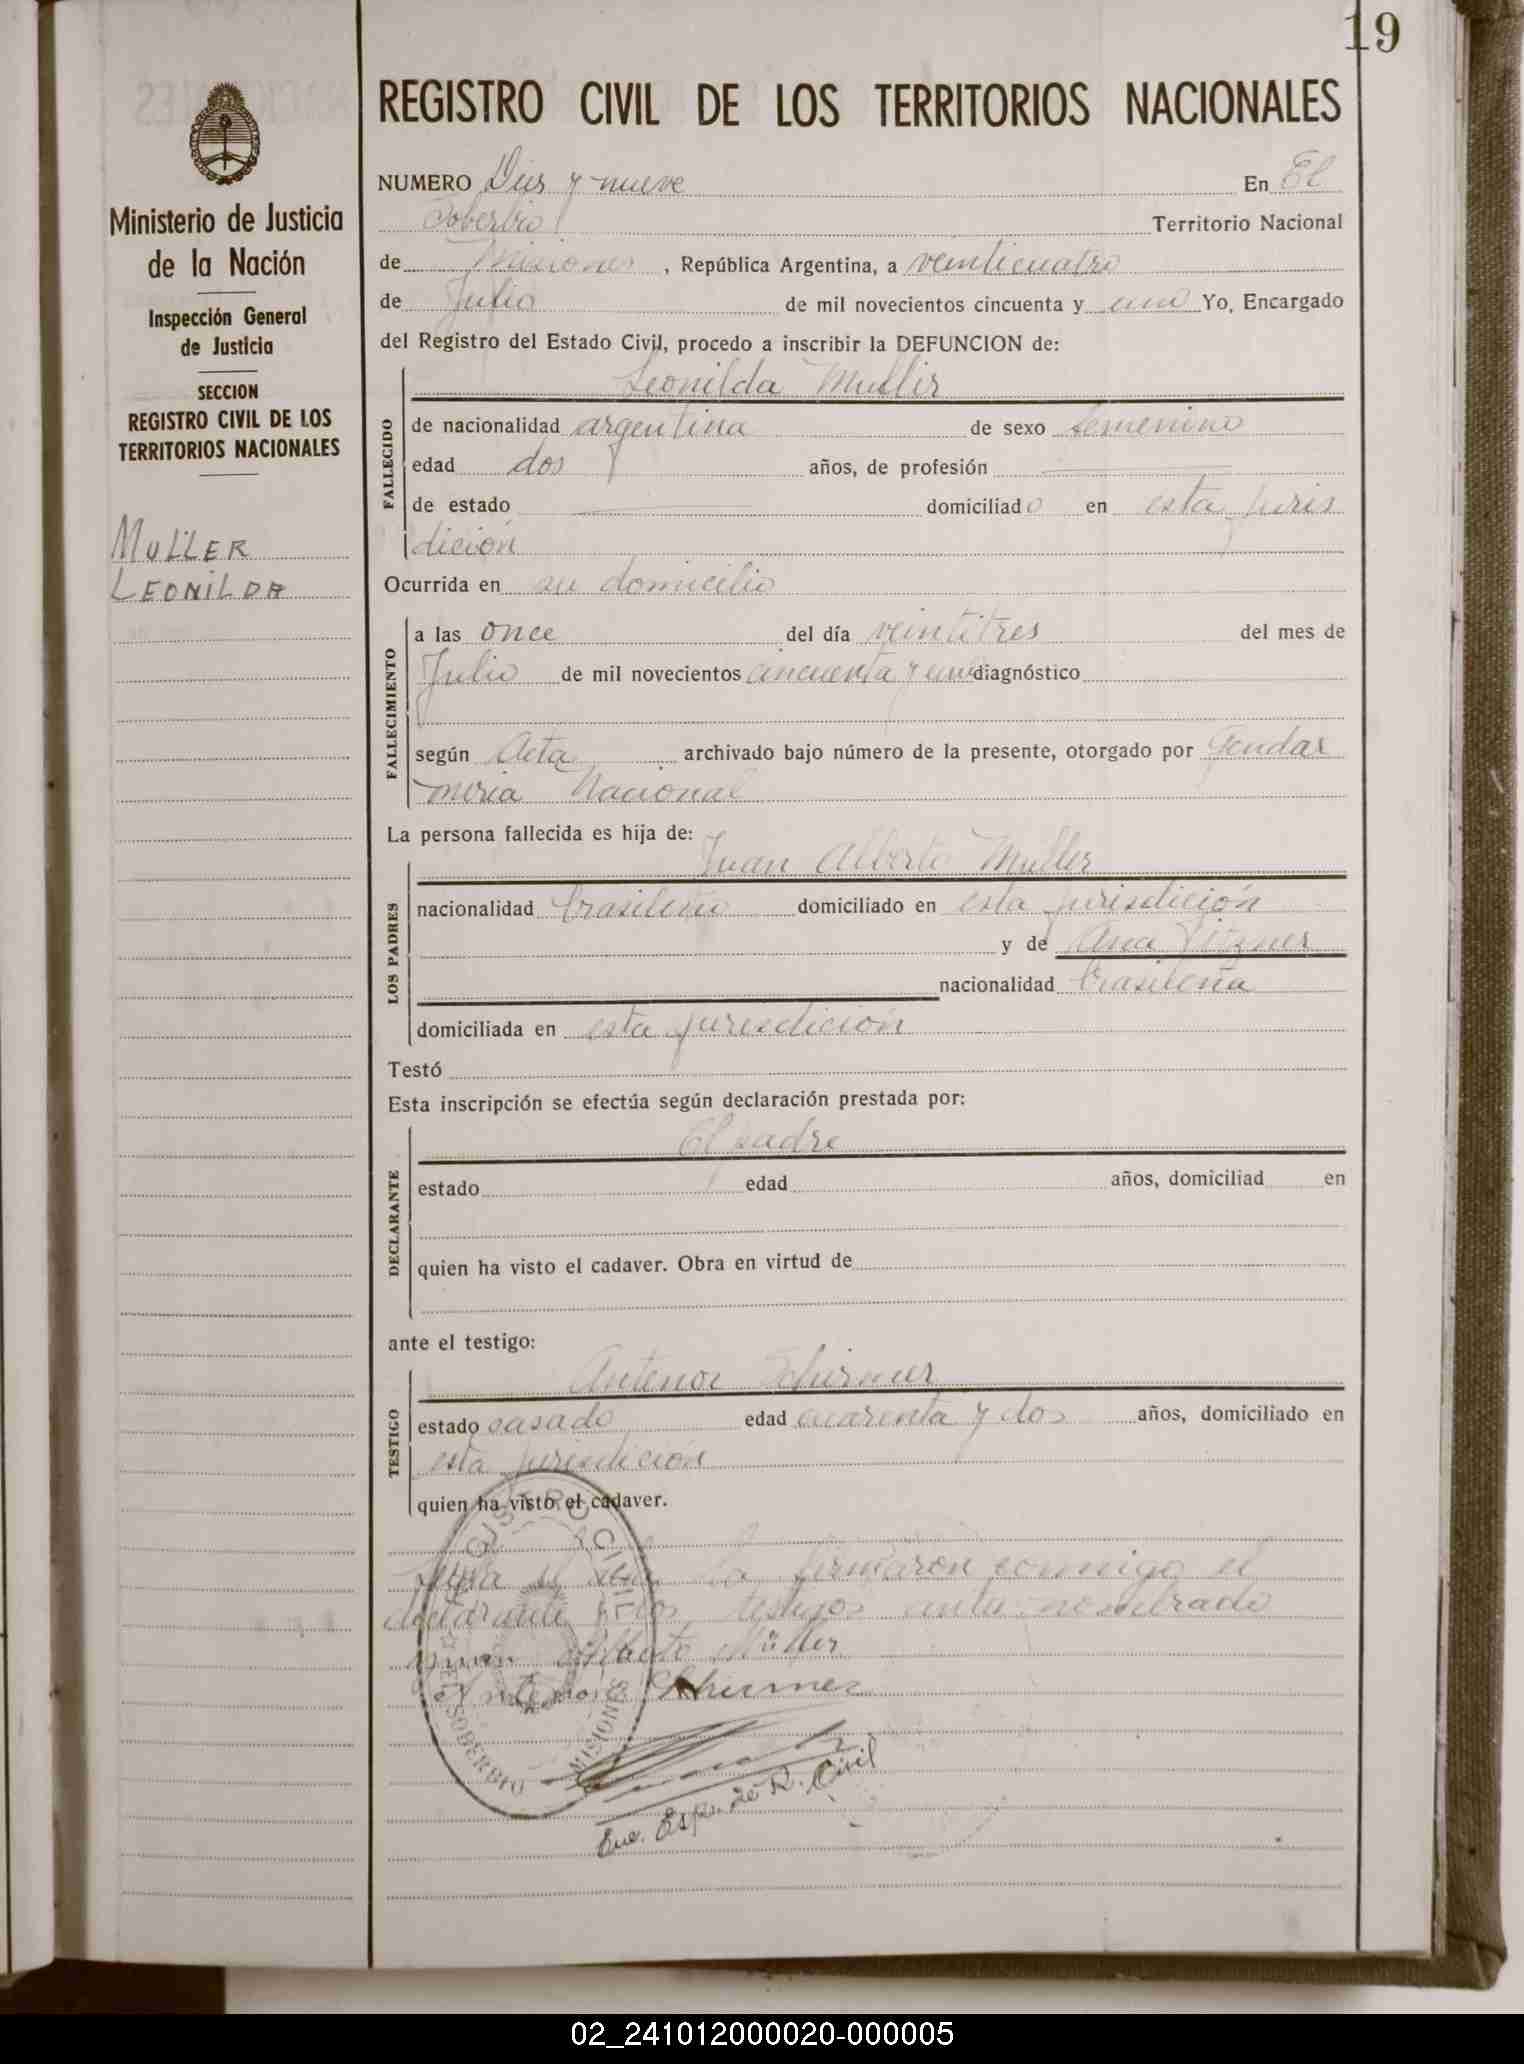 19
REGISTRO CIVIL DE LOS TERRITORIOS NACIONALES
Ministerio de Justicia
de la Nación
Inspección General
de Justicia
SECCION
REGISTRO CIVIL DE LOS
TERRITORIOS NACIONALES
MULLER
LEONILDA
NUMERO Dies y nueve En El
Soberbio Territorio Nacional
de Misiones , República Argentina, a veinticuatro
de Julio de mil novecientos cincuenta y uno Yo, Encargado
del Registro del Estado Civil, procedo a inscribir la DEFUNCION de:
Leonilda Muller
FALLECIDO
de nacionalidad argentina de sexo femenino
edad dos años, de profesión
de estado domiciliado en esta juris
dición
Ocurrida en su domicilio
FALLECIMIENTO
a las once del día veintitres del mes de
Julio de mil novecientos cincuenta y uno diagnóstico
según Acta archivado bajo número de la presente, otorgado por Gendar
meria Nacional
La persona fallecida es hija de:
Juan Alberto Muller
LOS PADRES
nacionalidad brasileño domiciliado en esta jurisdición
y de Ana
nacionalidad brasileña
domiciliada en esta jurisdición
Testó
Esta inscripción se efectúa según declaración prestada por:
El padre
DECLARANTE
estado edad años, domiciliad en
quien ha visto el cadaver. Obra en virtud de
ante el testigo:
Antenor Schirmer
TESTIGO
estado casado edad cuarenta y dos años, domiciliado en
esta jurisdición
quien ha visto el cadaver.
Leida el acta la firmaron conmigo el
declarante y los testigos ante nombrado
Juan Alberto Müller
Antenor Schirmer
REGISTRO CIVIL
EL SOBERBIO MISIONES
Enc. Esp. de R. Civil
02_241012000020-000005